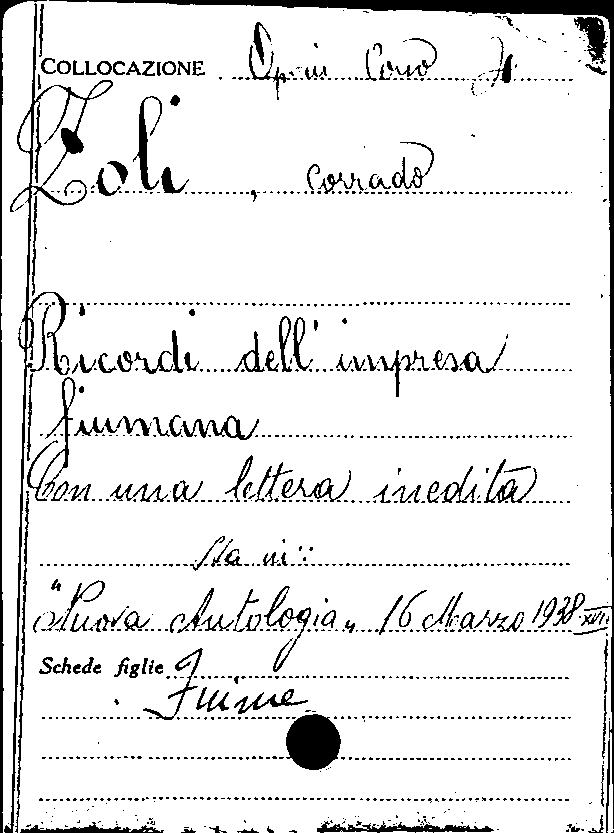 COLLOCAZIONE Opusc. Coro
Zoli, Corrado
Ricordi dell'impresa
fiumana
Con una lettera inedita
Sta in:
"Nuova Antologia" 16 Marzo 1938-XVI
Schede figlie
Fiume